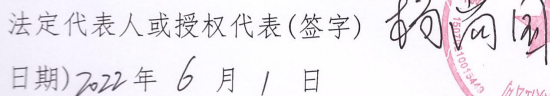 法定代表人或授权代表(签字)
日期)2022年6月1日